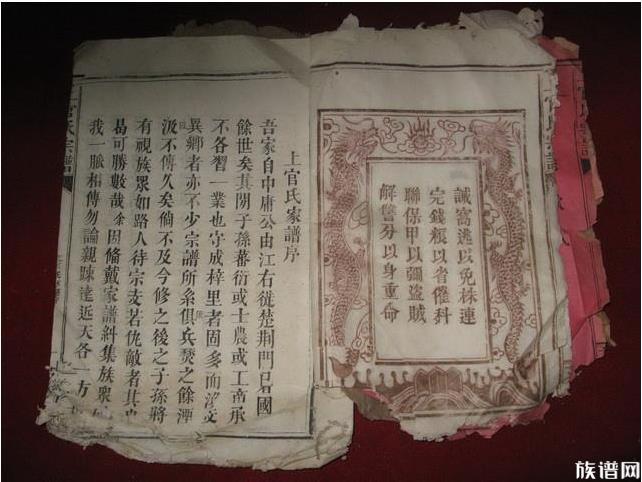 誡窩逃以免株連
完錢糧以省催科
聯保甲以彌盜賊
解讐忿以身重命
上官氏家譜序
吾家自中庸公由江右徙楚荆門已日國
餘世矣其閒子孫蕃衍或士農或工商承
不各習一業也守成梓里者固多而
異鄉者亦不少宗譜所系俱兵燹之餘湮
沒不傳久矣倘不及今修之後之子孫將
有視族眾如路人待宗支若仇敵者其
曷可勝數哉余因脩戴家譜糾集族眾
我一脈相傳勿論親踈遠近天各一方
官氏宗譜
官氏宗譜
族谱网